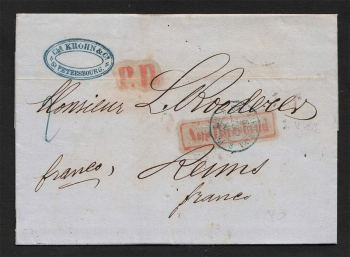 Cd. KROHN & Co.
St PETERSBOURG.
P.D
Monsieur L. Roederer
Aus Russland
Reims
franco,
franco